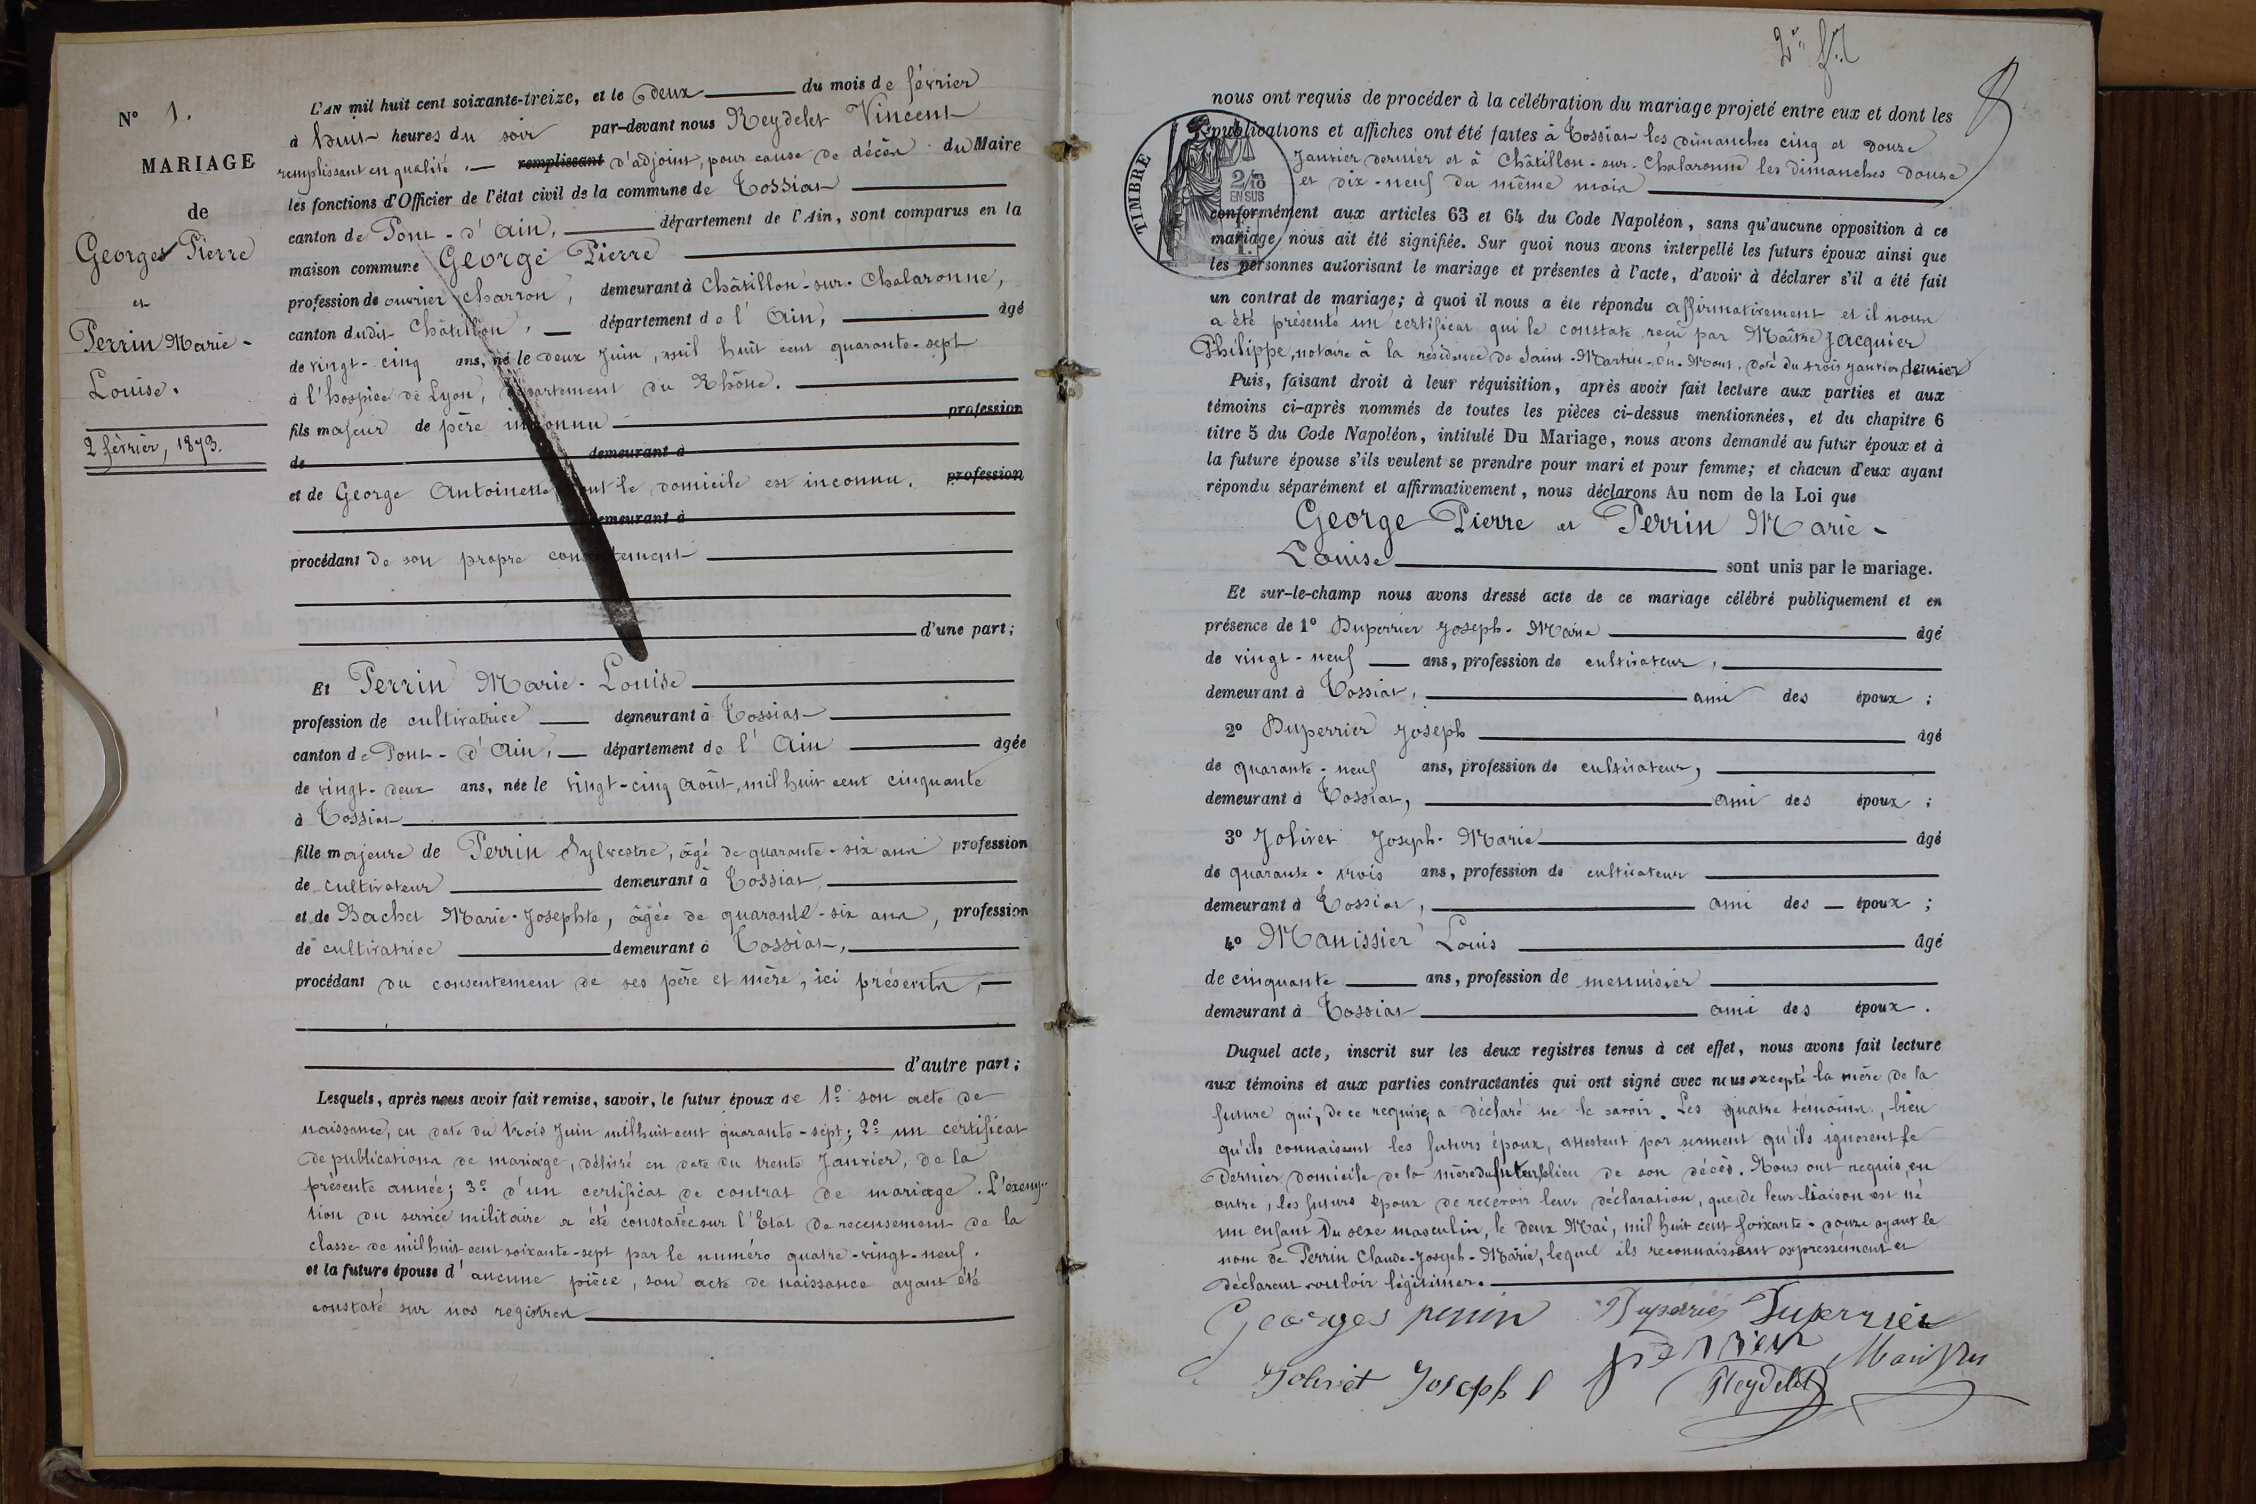 N° 1.
MARIAGE
de
Georges Pierre
et
Perrin Marie-
Louise.
2 février, 1873.
L'AN mil huit cent soixante-treize, et le deux du mois de février
à huit heures du soir par-devant nous Reydelet Vincent
remplissant en qualité remplissant d'adjoint, pour cause de décès du Maire
les fonctions d'Officier de l'état civil de la commune de Tossiat
canton de Pont-d'Ain, département de l'Ain, sont comparus en la
maison commune George Pierre
profession de ouvrier charron, demeurant à Châtillon-sur-Chalaronne,
canton dudit Châtillon, département de l'Ain, âgé
de vingt-cinq ans, né le deux Juin, mil huit cent quarante-sept
à l'hospice de Lyon, département du Rhône.
fils majeur de père inconnu profession
de demeurant à
et de George Antoinette dont le domicile est inconnu. profession
demeurant à
procédant de son propre consentement
d'une part;
Et Perrin Marie-Louise
profession de cultivatrice demeurant à Tossiat
canton de Pont-d'Ain, département de l'Ain âgée
de vingt-deux ans, née le vingt-cinq Août, mil huit cent cinquante
à Tossiat
fille majeure de Perrin Sylvestre, âgé de quarante-six ans profession
de cultivateur demeurant à Tossiat,
et de Bachet Marie-Josephte, âgée de quarante-six ans, profession
de cultivatrice demeurant à Tossiat,
procédant du consentement de ses père et mère, ici présents,
d'autre part;
Lesquels, après nous avoir fait remise, savoir, le futur époux de 1° son acte de
naissance, en date du trois Juin mil huit cent quarante-sept; 2° un certificat
de publications de mariage, délivré en date du trente Janvier, de la
présente année; 3° d'un certificat de contrat de mariage. L'exemp-
tion du service militaire a été constatée sur l'Etat de recensement de la
classe de mil huit cent soixante-sept par le numéro quatre-vingt-neuf.
et la future épouse d'aucune pièce, son acte de naissance ayant été
constaté sur nos registres
2e f.t
nous ont requis de procéder à la célébration du mariage projeté entre eux et dont les
publications et affiches ont été faites à Tossiat les dimanches cinq et douze
Janvier dernier et à Châtillon-sur-Chalaronne les dimanches douze
et dix-neuf du même mois
TIMBRE
2/10
EN SUS
conformément aux articles 63 et 64 du Code Napoléon, sans qu'aucune opposition à ce
mariage nous ait été signifiée. Sur quoi nous avons interpellé les futurs époux ainsi que
les personnes autorisant le mariage et présentes à l'acte, d'avoir à déclarer s'il a été fait
un contrat de mariage; à quoi il nous a été répondu affirmativement et il nous
a été présenté un certificat qui le constate reçu par Maître Jacquier
Philippe, notaire à la résidence de Saint-Martin-du-Mont, daté du trois Janvier dernier
Puis, faisant droit à leur réquisition, après avoir fait lecture aux parties et aux
témoins ci-après nommés de toutes les pièces ci-dessus mentionnées, et du chapitre 6
titre 5 du Code Napoléon, intitulé Du Mariage, nous avons demandé au futur époux et à
la future épouse s'ils veulent se prendre pour mari et pour femme; et chacun d'eux ayant
répondu séparément et affirmativement, nous déclarons Au nom de la Loi que
George Pierre et Perrin Marie-
Louise sont unis par le mariage.
Et sur-le-champ nous avons dressé acte de ce mariage célébré publiquement et en
présence de 1° Duperrier Joseph-Marie âgé
de vingt-neuf ans, profession de cultivateur,
demeurant à Tossiat, ami des époux;
2° Duperrier Joseph âgé
de quarante-neuf ans, profession de cultivateur,
demeurant à Tossiat, ami des époux;
3° Jolivet Joseph-Marie âgé
de quarante-trois ans, profession de cultivateur
demeurant à Tossiat, ami des époux;
4° Manissier Louis âgé
de cinquante ans, profession de menuisier
demeurant à Tossiat ami des époux.
Duquel acte, inscrit sur les deux registres tenus à cet effet, nous avons fait lecture
aux témoins et aux parties contractantes qui ont signé avec nous excepté la mère de la
future qui, de ce requise, a déclaré ne le savoir. Les quatre témoins, bien
qu'ils connaissent les futurs époux, attestent par serment qu'ils ignorent le
dernier domicile de la mère du futur lieu de son décès. Nous ont requis, en
outre, les futurs époux de recevoir leur déclaration, que de leur liaison est né
un enfant du sexe masculin, le deux Mai, mil huit cent soixante-douze ayant le
nom de Perrin Claude-Joseph-Marie, lequel ils reconnaissent expressément et
déclarent vouloir légitimer.
Georges perrin Duperrier Duperrier
Jolivet Joseph perrien Manissier
Reydelet